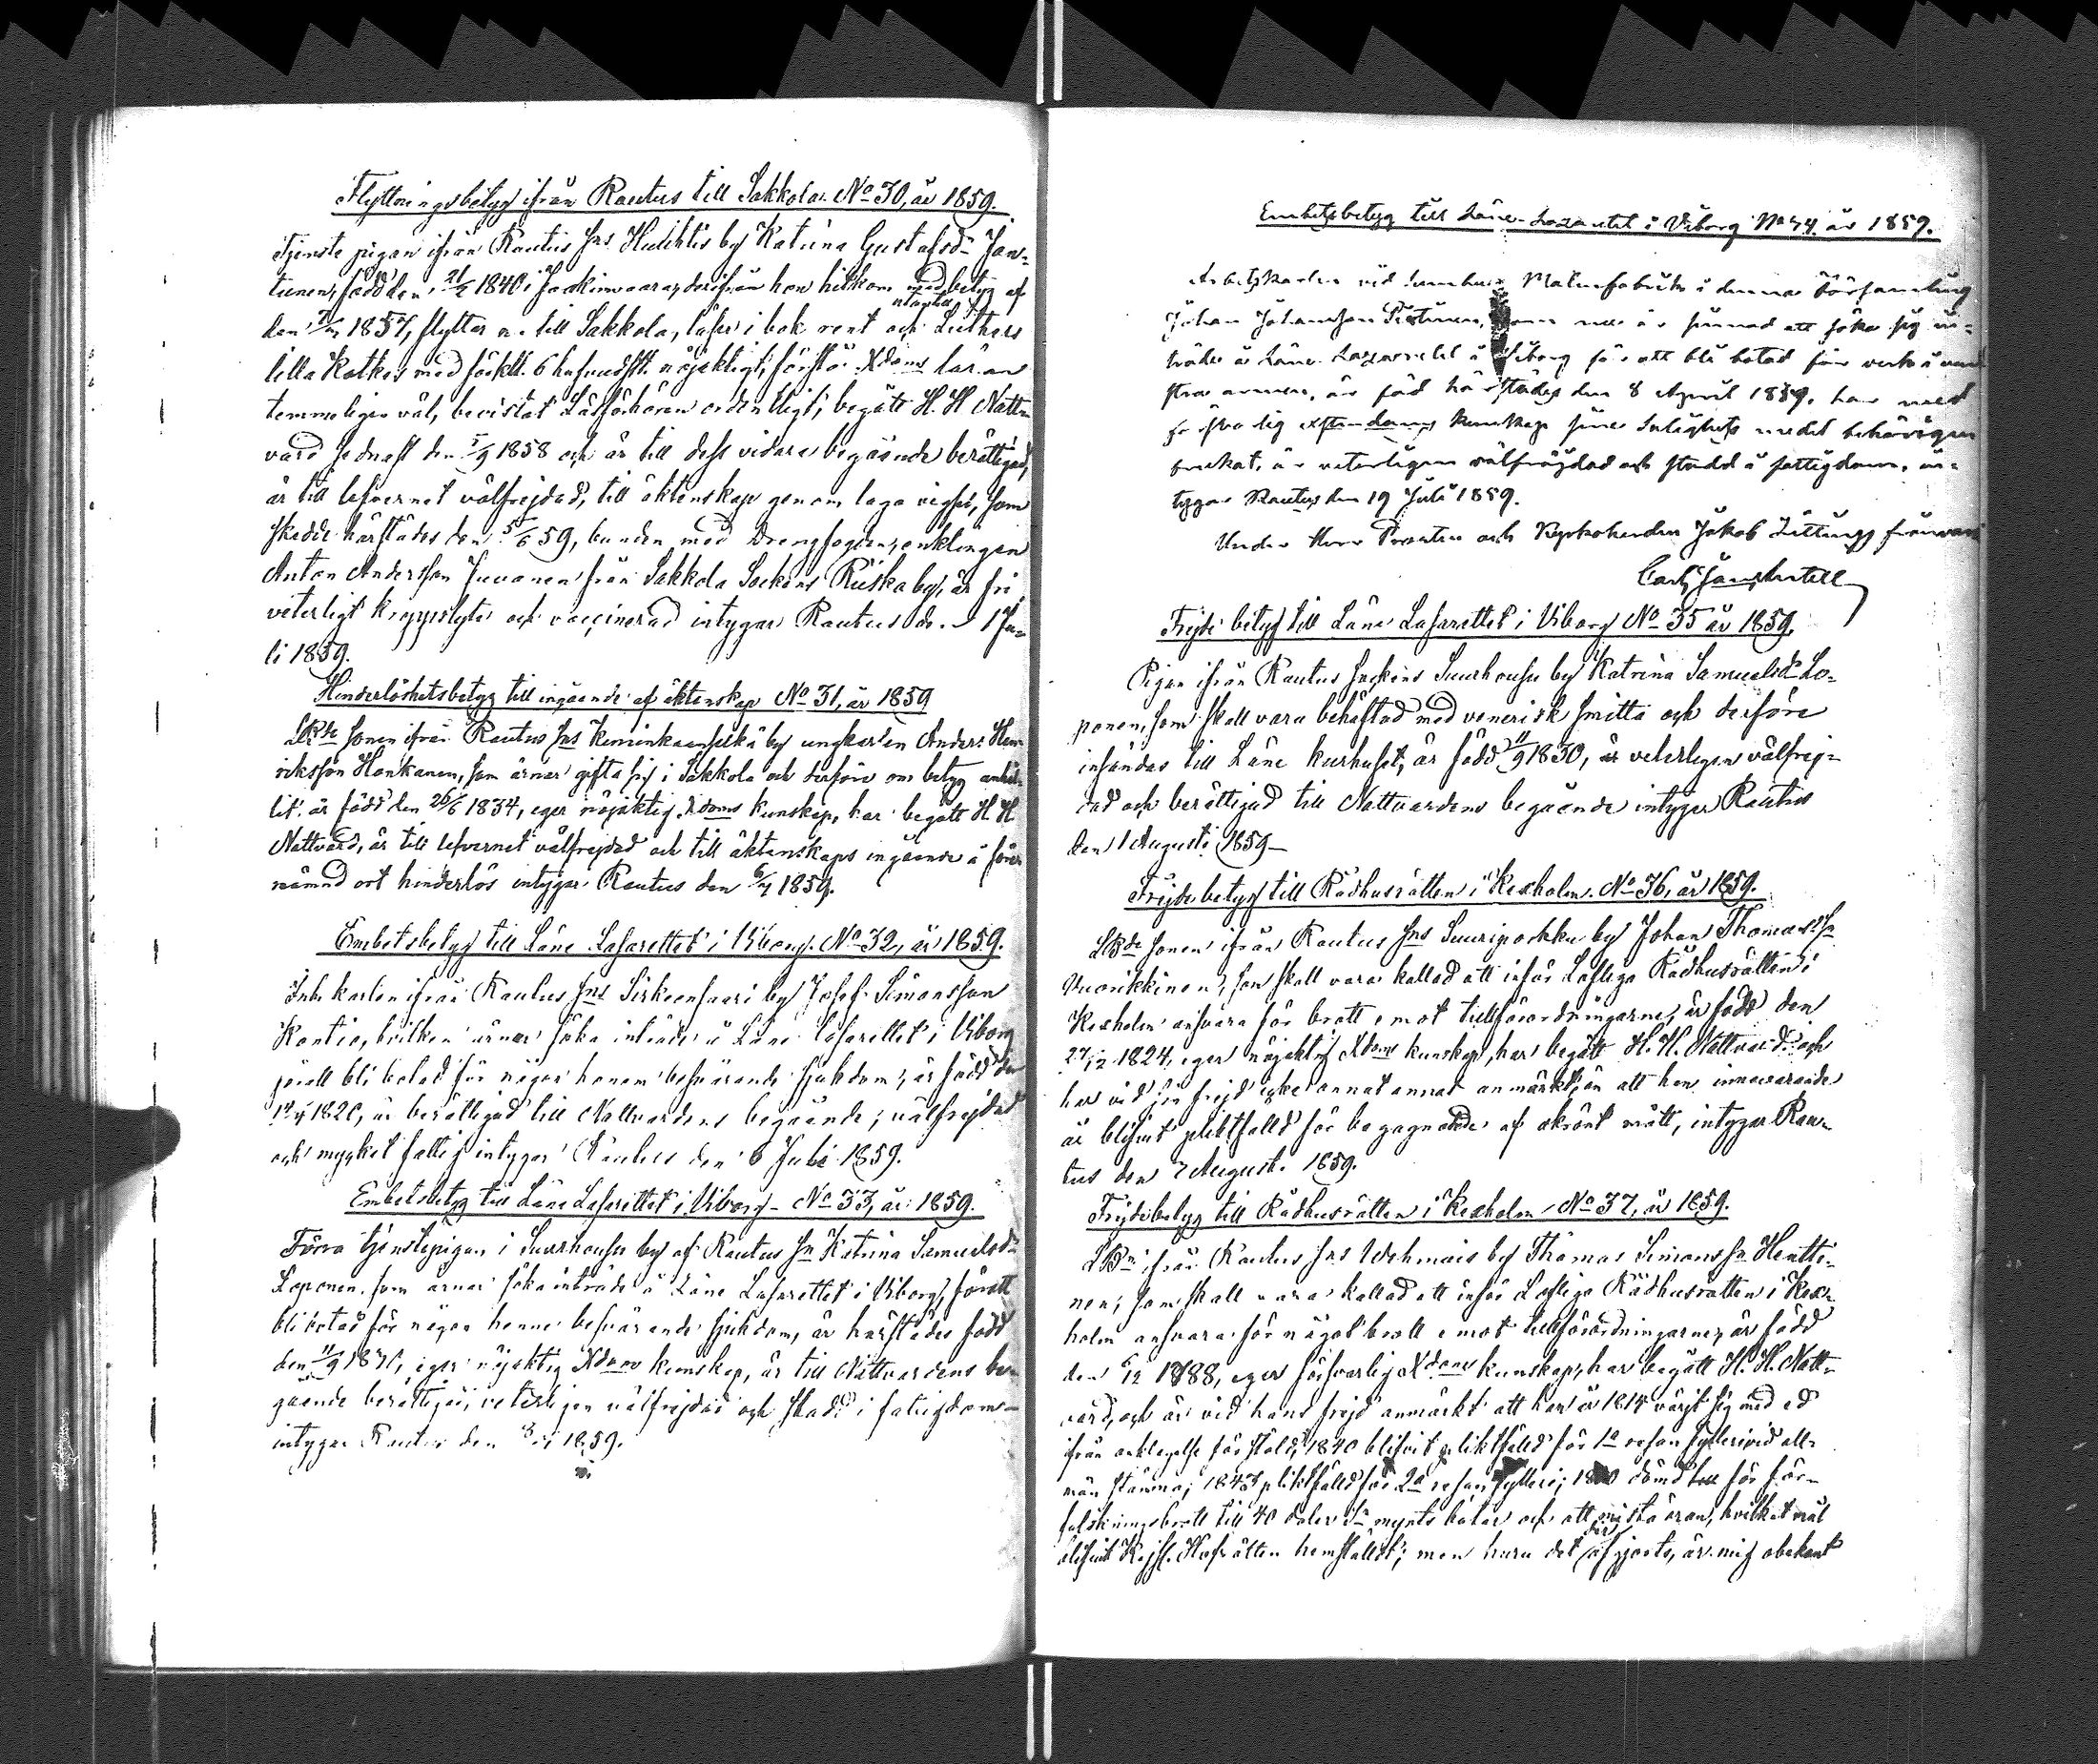 Flyttningsbetyg ifrån Rautus till Sakkola. No 30, år 1859.
Tjenste pigan ifrån Rautus sns Huhtis by Katrina Gustafsdr Jan-
tunen, född den 21/2 1840 i Jaakimvaara, derifrån hon hitkom med betyg af
den 1857, flyttar nu till Sakkola, läser i bok rent och Luthers
lilla Katkes med förklt. 6 hufvudst. nöjaktigt, förstår Xdoms läran
temmeligen väl, bevistat Läsförhören ordentligt, begått H. H. Natt-
vard sednast den 5/9 1858 och är till dess vidare begående berättigad,
är till lefvernet välfrejdad, till äktenskap genom laga vigsel, som
skedde härstädes den 5/6 59, bunden med Drengsogen, enklingen
Anton Andersson Juvonen från Sakkola Sockens Riiska by, är fri
veterligt kroppslyte och vaccinerad intygar Rautus den 1 Ju-
li 1859.
Hinderlöshetsbetyg till ingående af äktenskap No 31, år 1859
LBde sonen ifrån Rautus sns Keminkaanselkä by ungkarlen Anders Hen-
riksson Honkanen, som ärnar gifta sig i Sakkola och derföre om betyg anhål-
lit, är född den 26/6 1834, eger nöjaktig Xdoms kunskap, har begått H. H.
Nattvard, är till lefvernet välfrejdad och till äktenskaps ingående å före-
nämnd ort hinderlös intygar Rautus den 6/7 1859.
Embetsbetyg till Läne Lasarettet i Viborg. No 32, år 1859.
Inh. karlen ifrån Rautus sns Sirkeensaari by Josef Simonsson
Kontio, hvilken ärnar söka inträde å Läne lasarettet i Viborg
för att bli botad för någon honom besvärande sjukdom, är född den
1820, är berättigad till Nattvardens begående, välfrejdad
och mycket fattig intygar Rautus den 6 Juli 1859.
Embetsbetyg till Läne Lasarettet i Viborg - No 33, år 1859.
Förra tjenstepigan i Suurhousu by af Rautus sn Katrina Samuelsdr
Loponen, som ärnar söka inträde å Läne Lasarettet i Viborg, för att
bli botad för någon henne besvärande sjukdom, är härstädes född
den 11/9 eger nöjaktig Xdoms kunskap, är till Nattvardens be-
gående berättigad, veterligen välfrejdad och stadd i fattigdom -
intygar Rautus den 1859.
Embetsbetyg till Läne-Lazarettet i Viborg No 34 år 1859.
Arbetskarlen vid Maturfabrik i denna Församling
Johan Johansson som nu är sinnad att söka sig in-
träde å Läne Lazarettet i Viborg för att bli botad för verk i ven-
stra armen, är född härstädes den 8 April har med
försvarlig xstendoms kunskap sine Salighets medel behörigen
brukat, är veterligen välfräjdad och stadd i fattigdom, in-
tygar Rautus den 19 Juli 1859.
Under Herr Prosten och Kyrkoherden Jakob frånvaro
Carl
Frejde betyg till Läne Lasarettet i Viborg No 35 år 1859.
Pigan ifrån Rautus Sockens Suurhousu by Katrina Samuelsdr Lo-
ponen, som skall vara behäftad med venerisk smitta och derföre
insändas till Läne kurhuset, är född 11/9 1830, är veterligen välfrej-
dad och berättigad till Nattvardens begående intygar Rautus
den 1 Augusti 1859 -
Frejdebetyg till Rådhusrätten i Kexholm. No 36, år 1859.
LBde sonen ifrån Rautus sns Suuriporkku by Johan Thomasssn
Vuorikkinen, som skall vara kallad att inför Lofliga Rådhusrätten i
Kexholm ansvara för brott emot tullförordningarne, är född den
27/12 1824, eger nöjaktig Xdoms kunskap, har begått H. H. Nattvard och
har vid sin frejd icke annat annat anmärkt, än att han innevarande
år blifvit pliktfälld för begagnande af okrönt mått, intygar Rau-
tus den 2 Augusti 1859.
Frejdebetyg till Rådhusrätten i Kexholm No 37, år 1859.
LBn ifrån Rautus sns Wehmais by Thomas Simonssn Hentti-
nen, som skall vara kallad att inför Lofliga Rådhusrätten i Kex-
holm ansvara för något brott emot tullförordningarne, är född
den 6/12 1788, eger försvarlig Xdoms kunskap, har begått H. H. Natt-
vard, och är vid hans frejd anmärkt att han år 1814 värjt sig med ed
ifrån anklagelse för stöld, 1840 blifvit pliktfälld för 1a resan fylleri vid all-
män stämma; 1843 pliktfälld för 2a resan fylleri; dömd till för för-
falskningsbrott till 40 daler Sr mynts böter och att mista äran, hvilket mål
blifvit Kejsl. Hofrätten hemstäldt; men huru det der afgjorts, är mig obekant